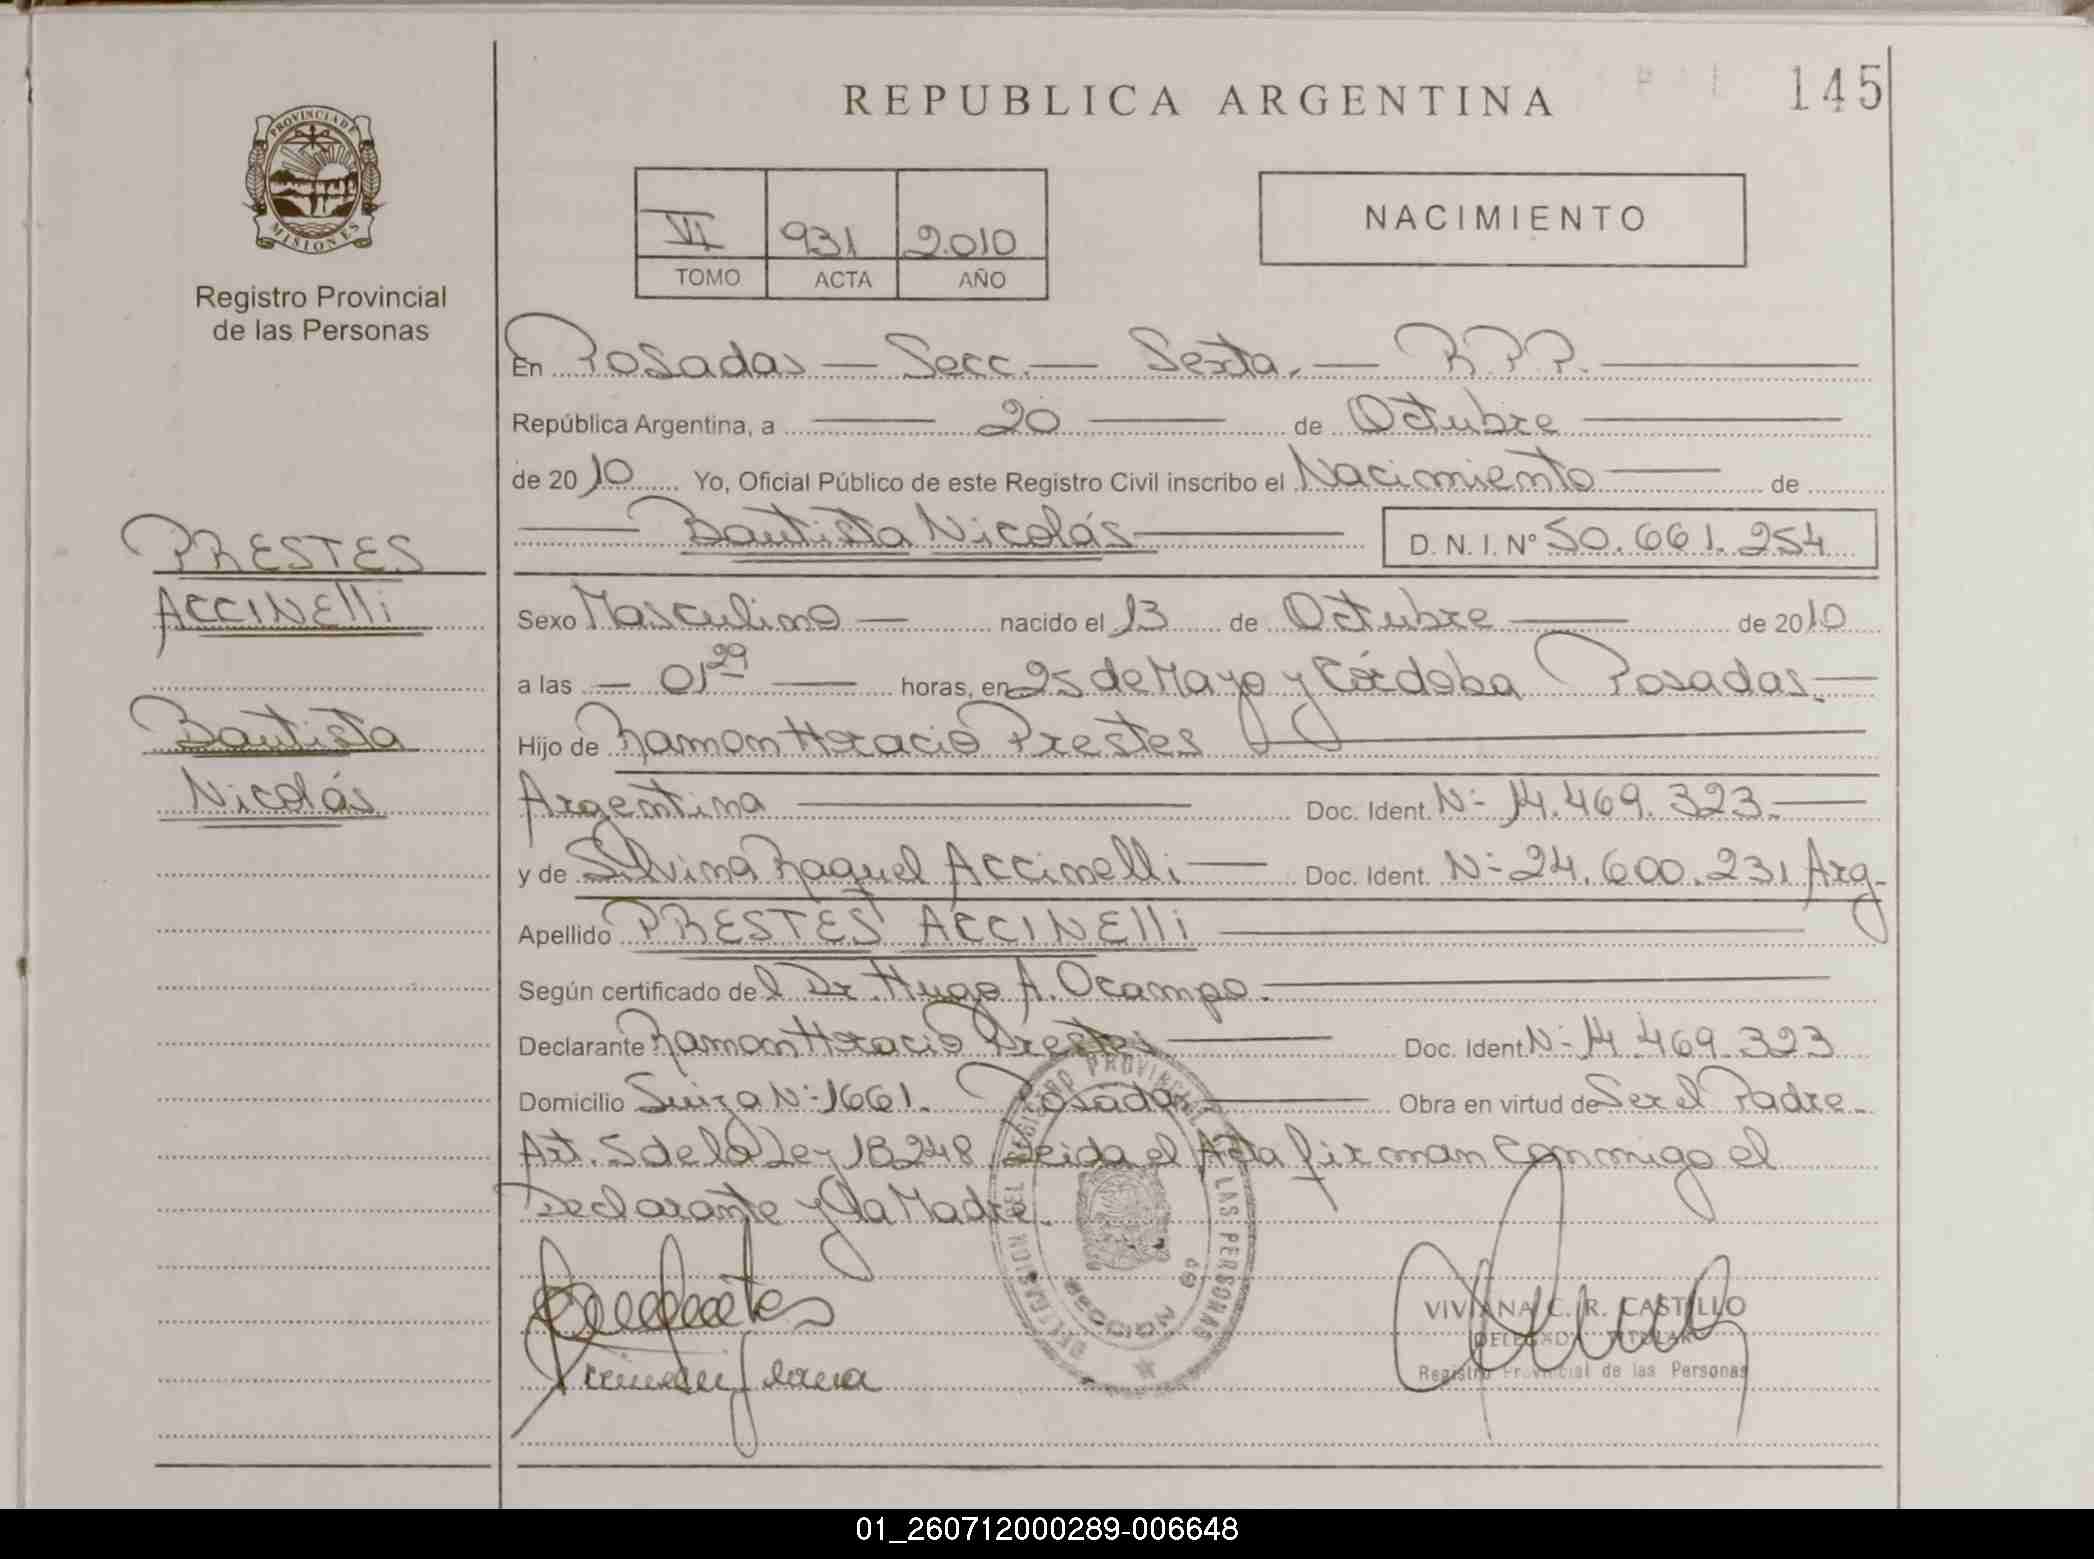 REPUBLICA ARGENTINA
145
PROVINCIA DE MISIONES
Registro Provincial
de las Personas
VI 931 2.010
TOMO ACTA AÑO
NACIMIENTO
En Posadas — Secc. — Sexta. — R.P.P.
República Argentina, a — 20 — de Octubre
de 2010 Yo, Oficial Público de este Registro Civil inscribo el Nacimiento — de
— Bautista Nicolás — D. N. I. N° 50.661.254
PRESTES
ACCINElli
Bautista
Nicolás
Sexo Masculino — nacido el 13 de Octubre — de 2010
a las — 01 29 — horas, en 25 de Mayo y Córdoba Posadas. —
Hijo de Ramon Horacio Prestes
Argentina — Doc. Ident. N- 14.469.323. —
y de Silvina Raquel Accinelli — Doc. Ident. N- 24.600.231 Arg-
Apellido PRESTES ACCINElli
Según certificado del Dr. Hugo A. Ocampo.
Declarante Ramon Horacio Prestes — Doc. Ident N- 14.469.323
Domicilio Suiza N- 1661. Posadas — Obra en virtud de Ser el Padre-
Art. 5 de la Ley 18248 Leida el Acta firman Conmigo el
Declarante y la Madre.
REGISTRO PROVINCIAL DE LAS PERSONAS
SECCION 6ª
VIVIANA C. R. CASTILLO
DELEGADA TITULAR
Registro Provincial de las Personas
01_260712000289-006648